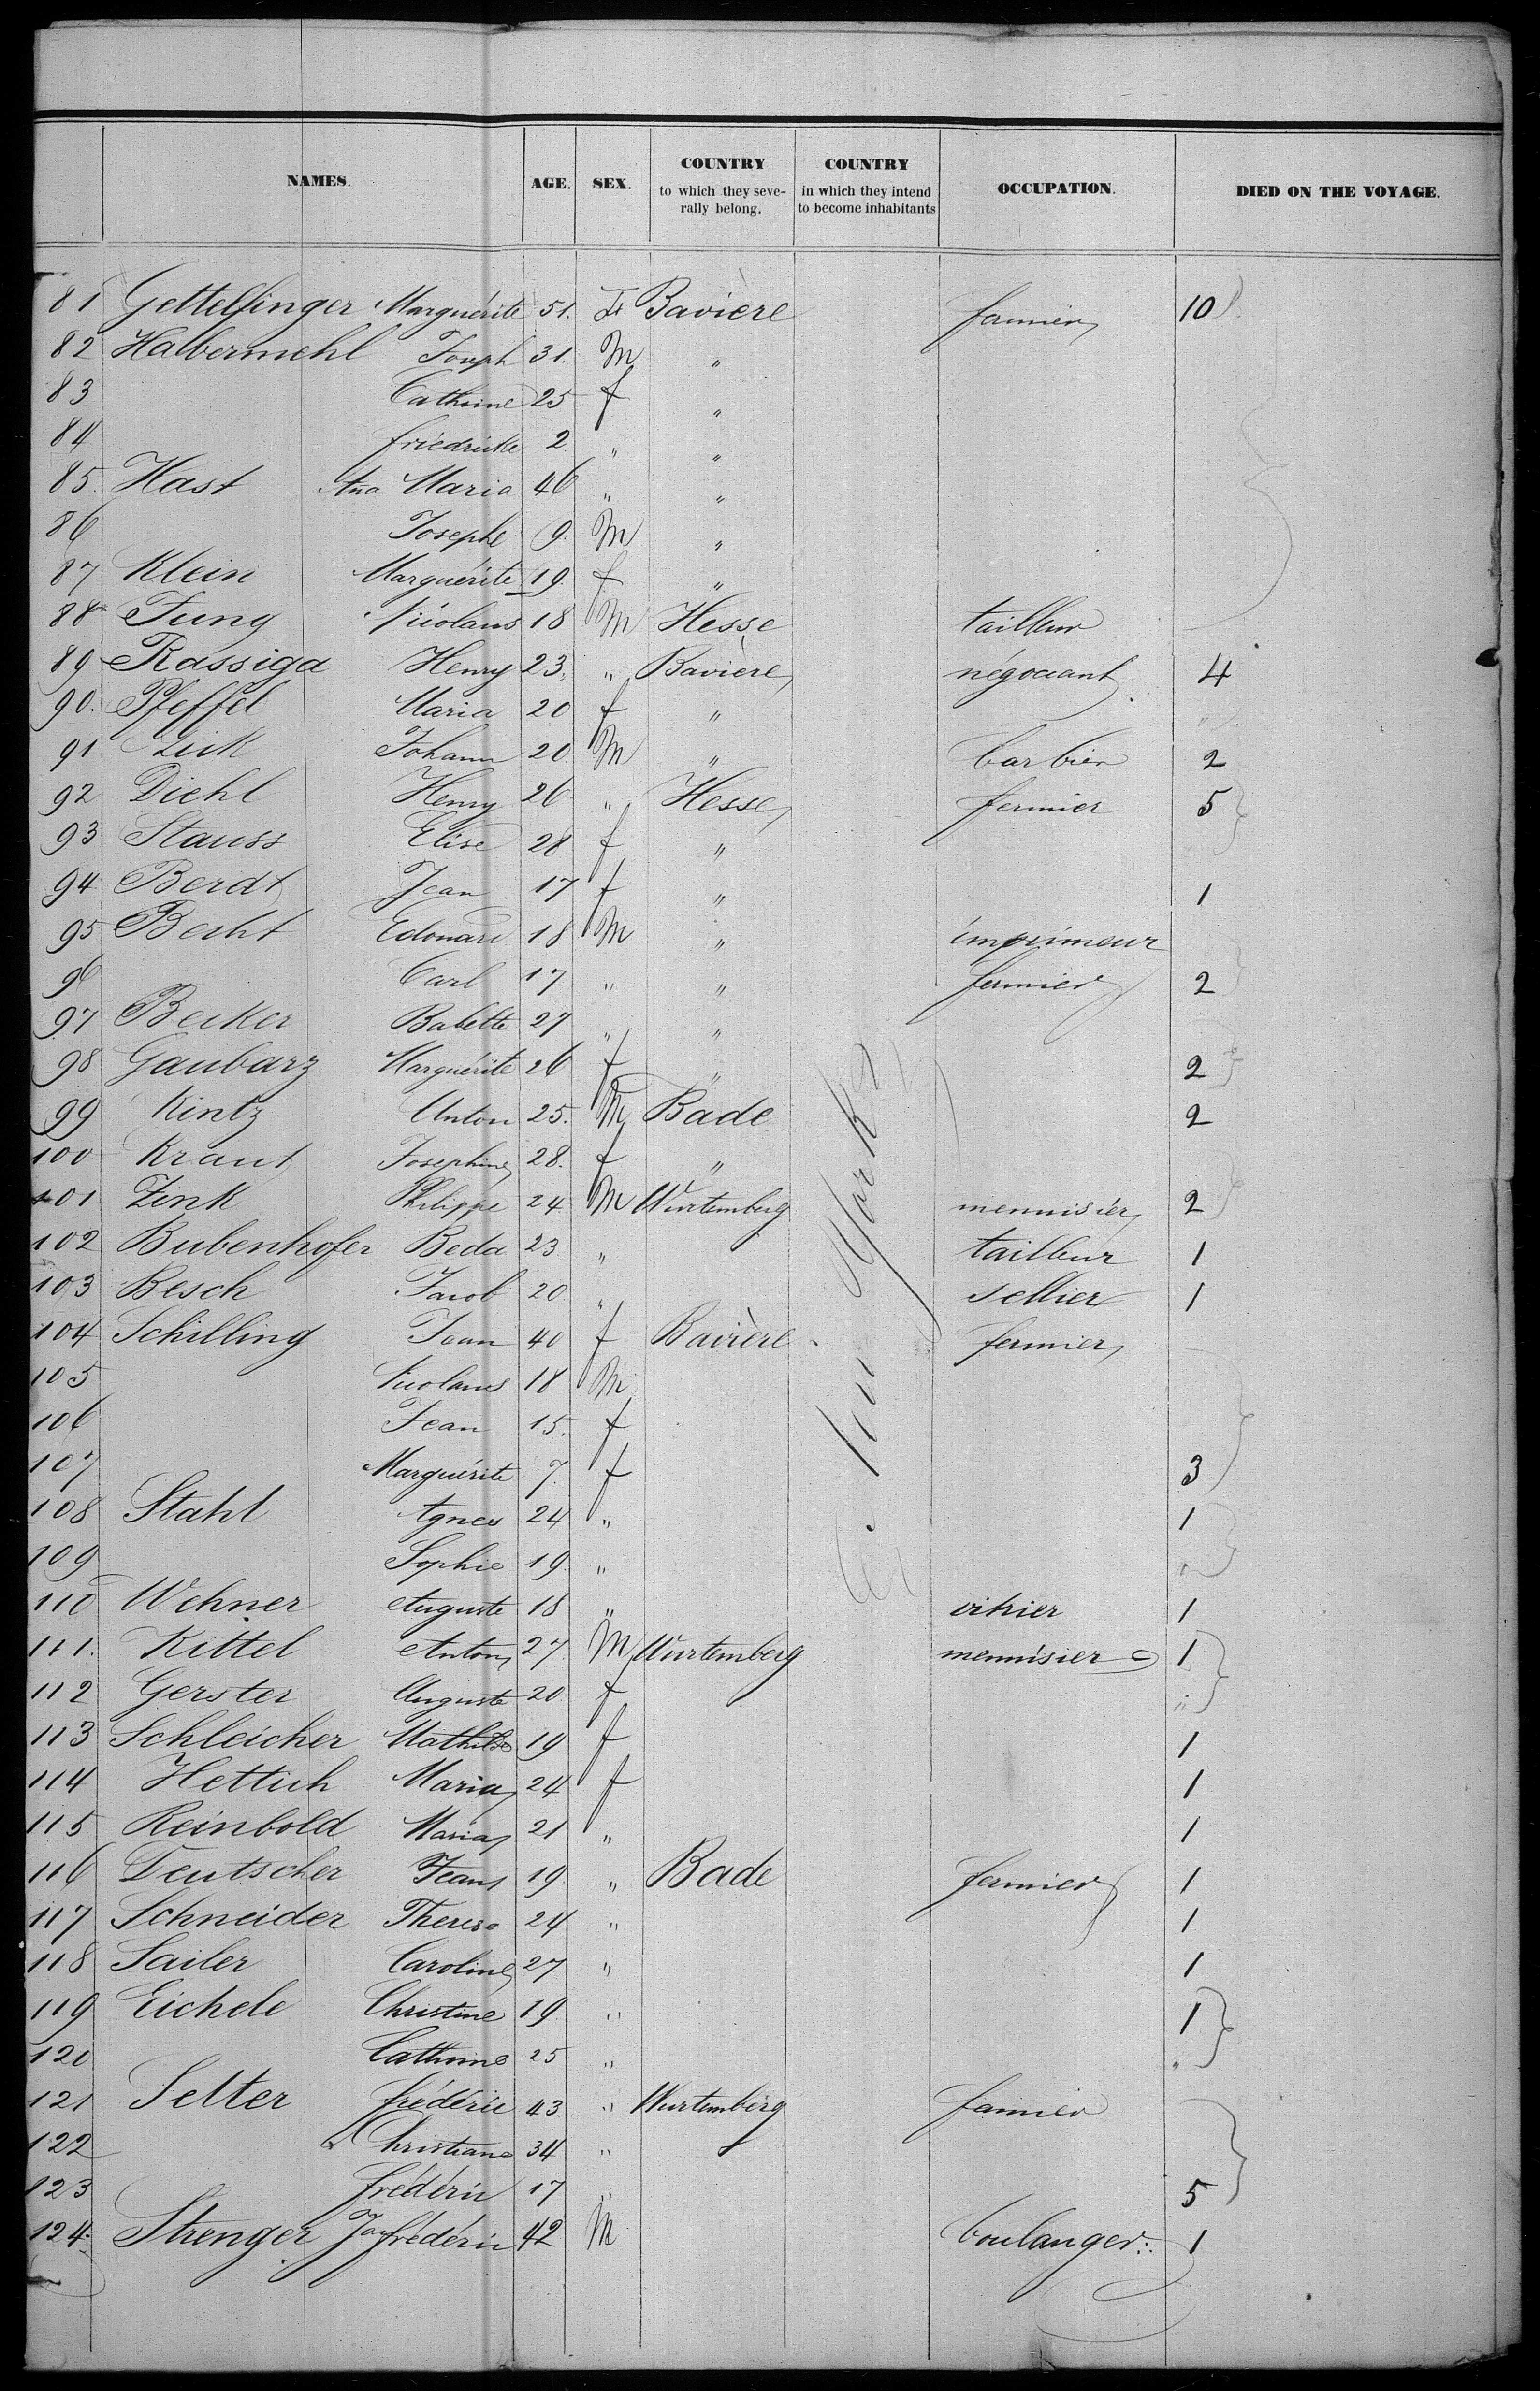 NAMES. AGE. SEX. COUNTRY to which they seve-rally belong. COUNTRY in which they intend to become inhabitants OCCUPATION. DIED ON THE VOYAGE.
81 Gettelfinger Marguérite 51. F Bavière fermier 10
82 Habermehl Joseph 31. M "
83 Cathrine 25 f "
84 friedricke 2 " "
85. Hast Ana Maria 46 " "
86 Josephe 9. M "
87 Klein Marguérite 19. f "
88 Jung Nicolaus 18 M Hesse tailleur
89 Rassiga Henry 23. " Bavière négociant 4
90. Pfeffel Maria 20 f " "
91 Zick Johann 20 M " barbier 2
92 Diehl Henry 26 " Hesse fermier 5
93 Stauss Elise 28 f "
94 Berdt Jean 17 f " 1
95 Becht Edouard 18 M " imprimeur
96 Carl 17 " " fermier 2
97 Becker Babette 27 " "
98 Gaubarz Marguérite 26 f " 2
99 Kintz Anton 25. M Bade 2
100 Kraut Josephine 28. f "
101 Zink Philippe 24 M Wurtemberg mennisier 2
102 Bubenhofer Beda 23 " tailleur 1
103 Besch Jacob 20 " sellier 1
104 Schilling Jean 40 f Bavière fermier
105 Nicolaus 18 M
106 Jean 15. f
107 Marguérite 7. f 3
108 Stahl Agnes 24 " 1
109 Sophie 19 " "
110 Wehner Auguste 18 " vitrier 1
111. Kittel Anton 27 M Wurtemberg mennisier 1
112 Gerster Auguste 20 f "
113 Schleicher Mathilde 19 f 1
114 Hettich Maria 24 f 1
115 Reinbold Maria 21 " 1
116 Deutscher Jean 19 " Bade fermier 1
117 Schneider Therese 24 " 1
118 Sailer Caroline 27 " 1
119 Eichele Christine 19 " 1
120 Cathrine 25 " "
121 Setter frédéric 43 " Wurtemberg fermier
122 Christiane 34 "
123 frédéric 17 " 5
124. Strenger Jac frédéric 42 M boulanger 1
New York